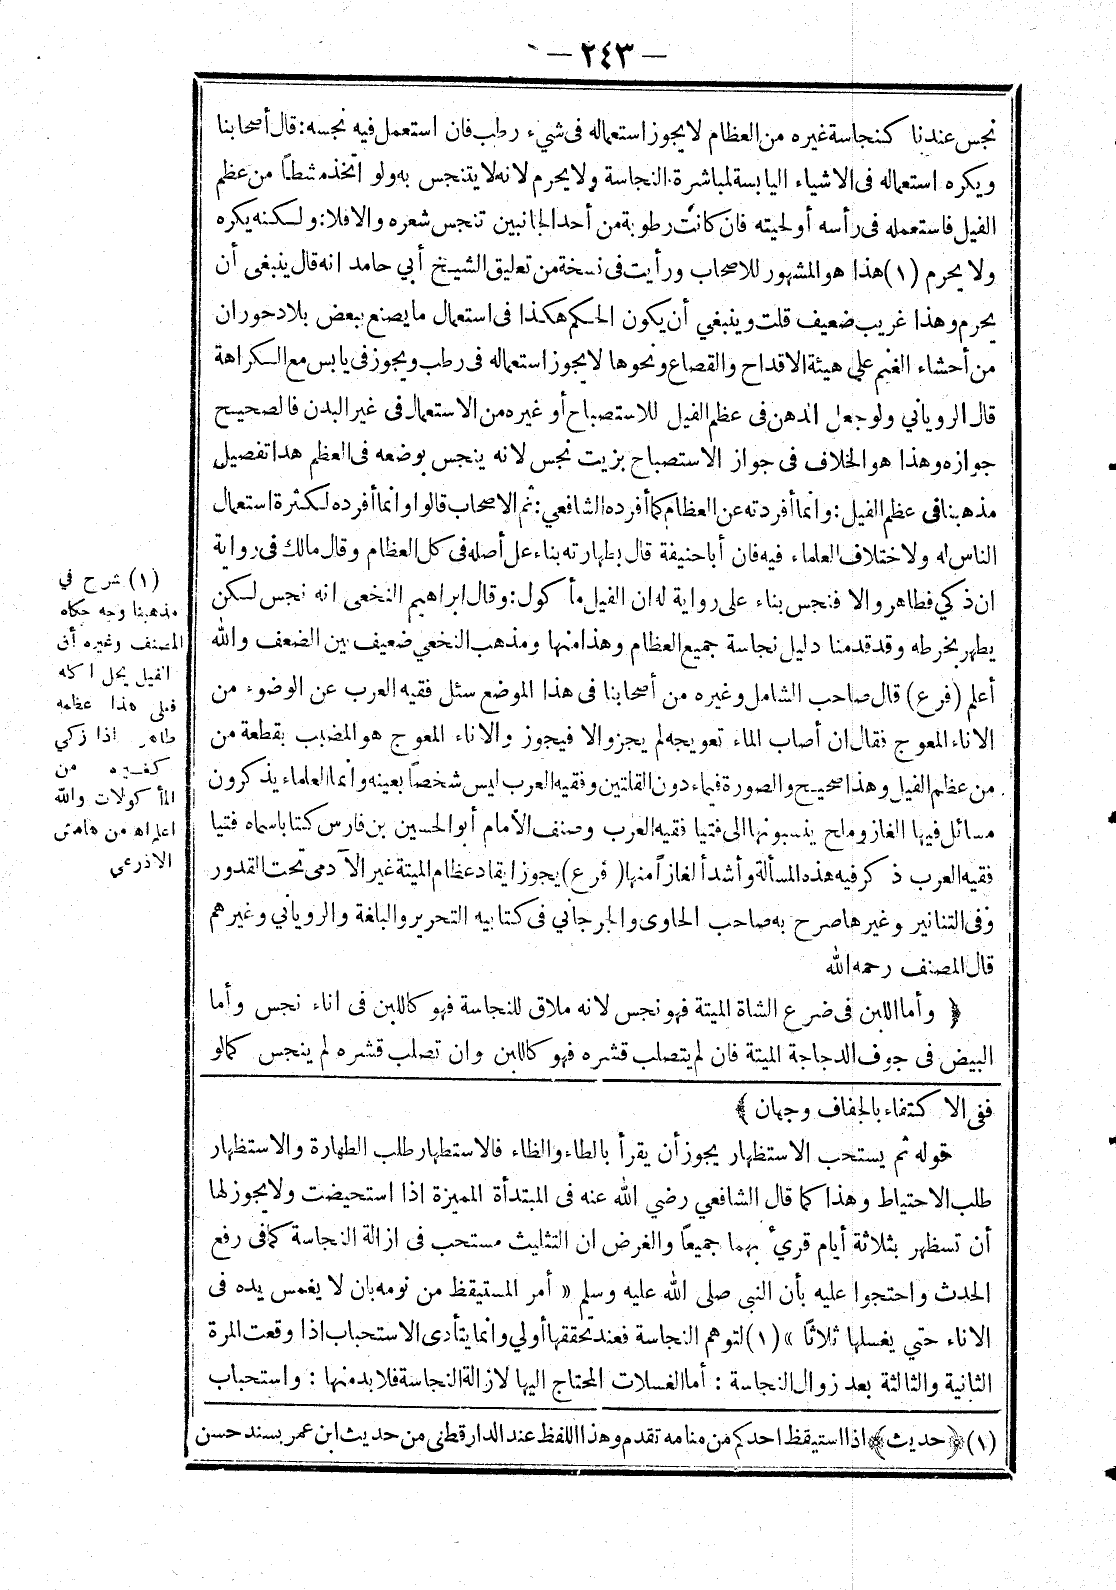 — ٢٤٣ —
نجس عندنا كنجاسة غيره من العظام لا يجوز استعماله فى شيء رطب فان استعمل فيه نجسه: قال أصحابنا
ويكره استعماله فى الاشياء اليابسة لمباشرة النجاسة ولا يحرم لانه لا يتنجس به ولو اتخذ مشطاً من عظم
الفيل فاستعمله فى رأسه أو لحيته فان كانت رطوبة من أحد الجانبين تنجس شعره والا فلا: ولكنه يكره
ولا يحرم (١) هذا هو المشهور للاصحاب ورأيت فى نسخة من تعليق الشيخ أبي حامد انه قال ينبغى أن
يحرم وهذا غريب ضعيف قلت وينبغي أن يكون الحكم هكذا فى استعمال ما يصنع ببعض بلاد حوران
من أحشاء الغنم علي هيئة الاقداح والقصاع ونحوها لا يجوز استعماله فى رطب ويجوز فى يابس مع الكراهة
قال الروياني ولو جعل الدهن فى عظم الفيل للاستصباح أو غيره من الاستعمال فى غير البدن فالصحيح
جوازه وهذا هو الخلاف فى جواز الاستصباح بزيت نجس لانه ينجس بوضعه فى العظم هذا تفصيل
مذهبنا فى عظم الفيل: وانما أفردته عن العظام كما أفرده الشافعي: ثم الاصحاب قالوا وانما أفرده لكثرة استعمال
الناس له ولاختلاف العلماء فيه فان أبا حنيفة قال بطهارته بناء على أصله فى كل العظام وقال مالك فى رواية
ان ذكي فطاهر والا فنجس بناء على رواية له ان الفيل مأكول: وقال ابراهيم النخعى انه نجس لكن
يطهر بخرطه وقد قدمنا دليل نجاسة جميع العظام وهذا منها ومذهب النخعي ضعيف بين الضعف والله
أعلم (فرع) قال صاحب الشامل وغيره من أصحابنا فى هذا الموضع سئل فقيه العرب عن الوضوء من
الاناء المعوج فقال ان أصاب الماء تعويجه لم يجز والا فيجوز والاناء المعوج هو المضبب بقطعة من
من عظم الفيل وهذا صحيح والصورة فيماء دون القلتين وفقيه العرب ليس شخصاً بعينه وانما العلماء يذكرون
مسائل فيها الغاز وملح ينسبونها الى فتيا فقيه العرب وصنف الأمام أبو الحسين بن فارس كتابا سماه فتيا
فقيه العرب ذكر فيه هذه المسألة وأشد ألغازاً منها (فرع) يجوز ايقاد عظام الميتة غير الآدمى تحت القدور
وفى التنانير وغيرها صرح به صاحب الحاوى والجرجاني فى كتابيه التحرير والبلغة والروياني وغيرهم
قال المصنف رحمه الله
﴿ وأما اللبن فى ضرع الشاة الميتة فهو نجس لانه ملاق للنجاسة فهو كاللبن فى اناء نجس وأما
البيض فى جوف الدجاجة الميتة فان لم يتصلب قشره فهو كاللبن وان تصلب قشره لم ينجس كما لو
ففى الاكتفاء بالجفاف وجهان ﴾
قوله ثم يستحب الاستظهار يجوز أن يقرأ بالطاء والظاء فالاستطهار طلب الطهارة والاستظهار
طلب الاحتياط وهذا كما قال الشافعي رضي الله عنه فى المبتدأة المميزة اذا استحيضت ولا يجوز لها
أن تسظهر بثلاثة أيام قريء بهما جميعاً والغرض ان التثليث مستحب فى ازالة النجاسة كما فى رفع
الحدث واحتجوا عليه بأن النبى صلى الله عليه وسلم « أمر المستيقظ من نومه بان لا يغمس يده فى
الاناء حتي يغسلها ثلاثاً » (١) لتوهم النجاسة فعند تحققها أولي وانما يتأدى الاستحباب اذا وقعت المرة
الثانية والثالثة بعد زوال النجاسة : أما الغسلات المحتاج اليها لازالة النجاسة فلا بد منها : واستحباب
(١) ﴿حديث﴾ اذا استيقظ احدكم من منامه تقدم وهذا اللفظ عند الدارقطنى من حديث ابن عمر بسند حسن
(١) شرح في
مذهبنا وجه حكاه
المصنف وغيره أن
الفيل يحل اكله
فعلى هذا عظمه
طاهر اذا زكي
كغيره من
المأكولات والله
اعلم اه من هامش
الاذرعي